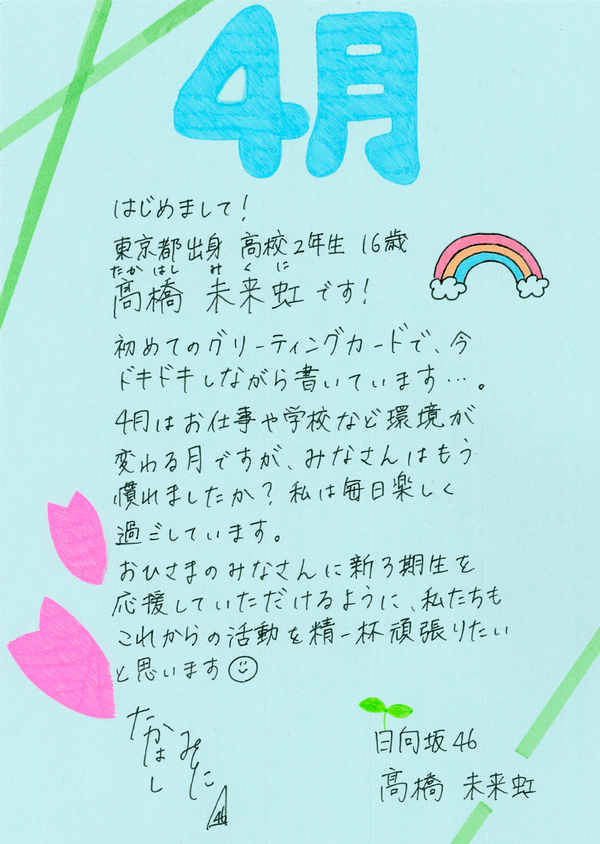 4月
はじめまして!
東京都出身 高校2年生 16歳
たか はし み く に
髙橋 未来虹です!
初めてのグリーティングカードで、今
ドキドキしながら書いています…。
4月はお仕事や学校など環境が
変わる月ですが、みなさんはもう
慣れましたか? 私は毎日楽しく
過ごしています。
おひさまのみなさんに新3期生を
応援していただけるように、私たちも
これからの活動を精一杯頑張りたい
と思います☺
たかはし
みくに
46
日向坂46
髙橋 未来虹